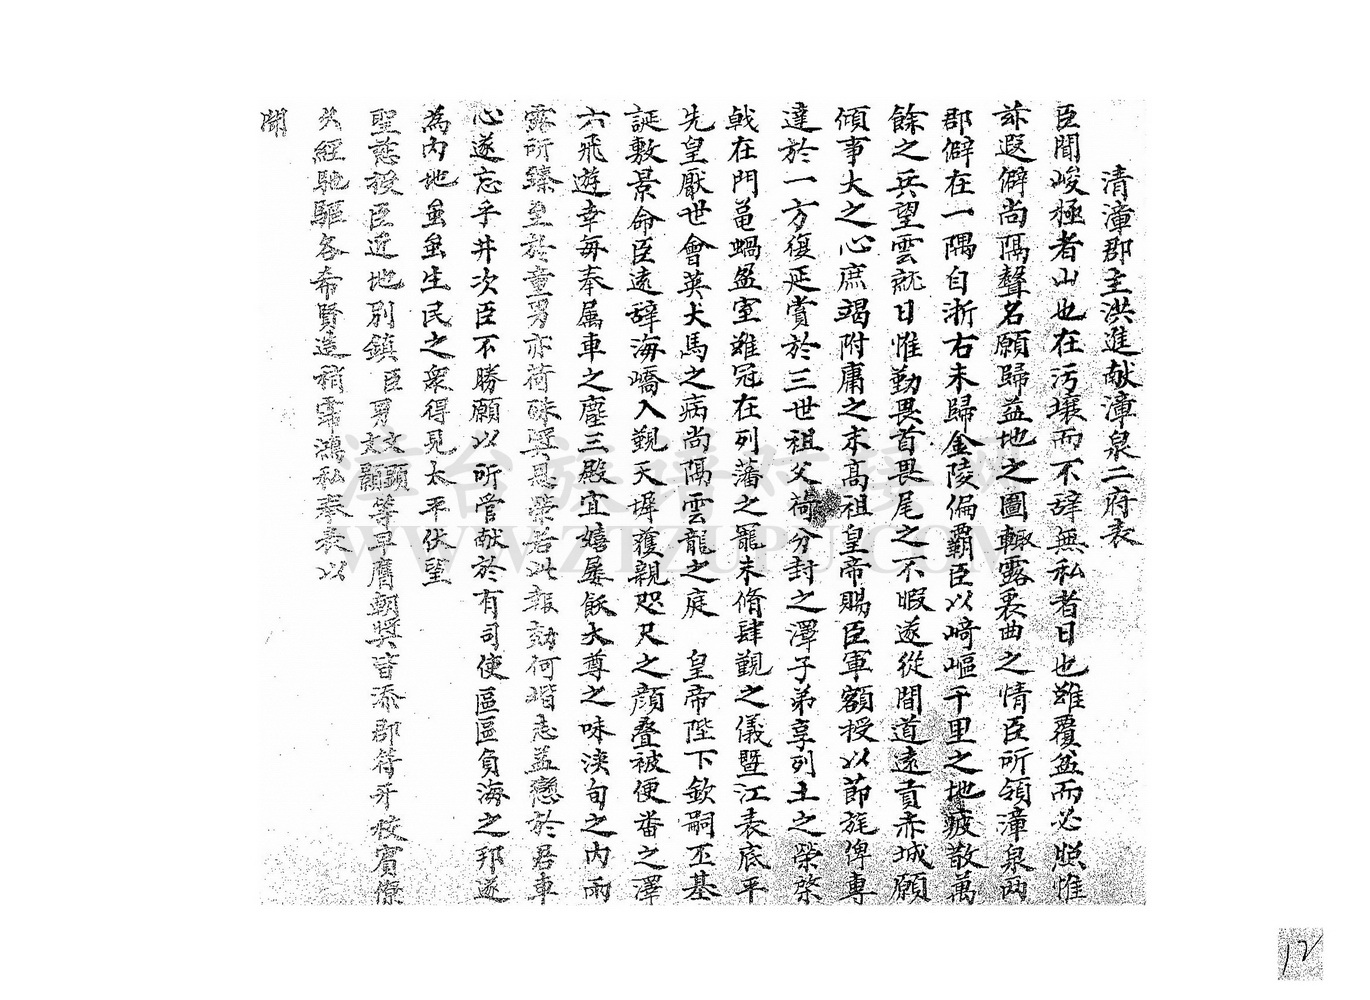 清漳郡主洪進献漳泉二府表
臣聞峻極者山也在污壤而不辞無私者日也雖覆盆而必照惟
遐僻尚隔聲名願歸益地之圖輒露衷曲之情臣所領漳泉两
郡僻在一隅自浙右未歸金陵偏覇臣以崎嶇千里之地疲散萬
餘之兵望雲就日惟勤畏首畏尾之不暇遂從間道遠貢赤城願
傾事大之心庶竭附庸之末高祖皇帝賜臣軍額授以節旄俾專
達於一方復延賞於三世祖父荷分封之澤子弟享列土之榮棨
戟在門黽蝸盈室雖冠在列藩之寵未脩肆覲之儀暨江表底平
先皇厭世會英犬馬之病尚隔雲龍之庭 皇帝陛下欽嗣丕基
誕敷景命臣遠辞海嶠入覲天墀獲親咫尺之顔叠被便番之澤
六飛遊幸每奉属車之塵三殿宜嬉屡飫大尊之味浹旬之内雨
露所臻至於童男亦荷殊奨恩榮若此報効何堦志益戀於君車
心遂忘乎井次臣不勝願以所管献於有司使區區負海之邦遂
為内地蚩蚩生民之衆得見太平伏望
聖慈授臣近地别鎮臣男文顯文顥等早膺朝奨皆添郡符牙校賓僚
久經馳驅各希賢造稍霈鴻私奉表以
聞
漳台族谱对接网
WWW.ZTZUPU.COM
12